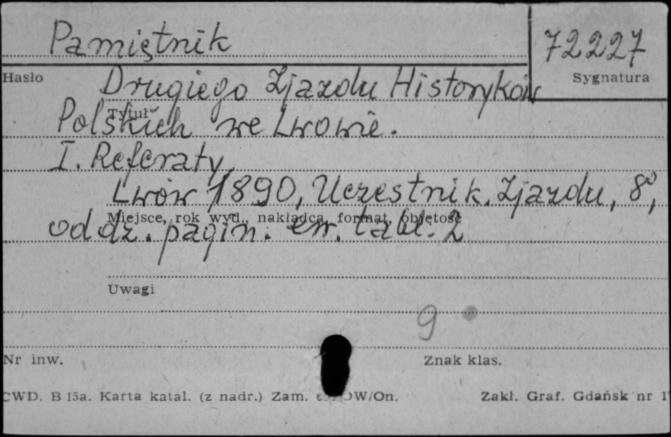 Pamiętnik 72227
Hasło Sygnatura
Drugiego Zjazdu Historyków
Tytuł
Polskich we Lwowie.
I. Referaty
Lwów 1890, Uczestnik. Zjazdu, 8°,
Miejsce, rok wyd., nakładca, format, objętość
oddz. pagin. tabl. 2
Uwagi
9
Nr inw. Znak klas.
CWD. B 15a. Karta katal. (z nadr.) Zam. OW/On. Zakł. Graf. Gdańsk nr